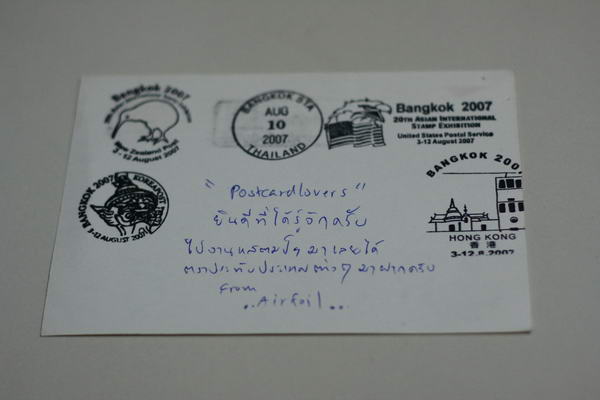 Bangkok 2007
New Zealand Post
3-12 August 2007
BANGKOK STA
AUG
10
2007
THAILAND
Bangkok 2007
20TH ASIAN INTERNATIONAL
STAMP EXHIBITION
United States Postal Service
3-12 August 2007
BANGKOK 2007 KOREA POST
3-12 AUGUST 2007
BANGKOK 2007
HONG KONG
香港
3-12.8.2007
"Postcardlovers"
ยินดีที่ได้รู้จักครับ
ไปงานแสตมป์ฯ มาเลยได้
ตราประทับประเทศต่างๆ มาฝากครับ
From
..Airfoil..